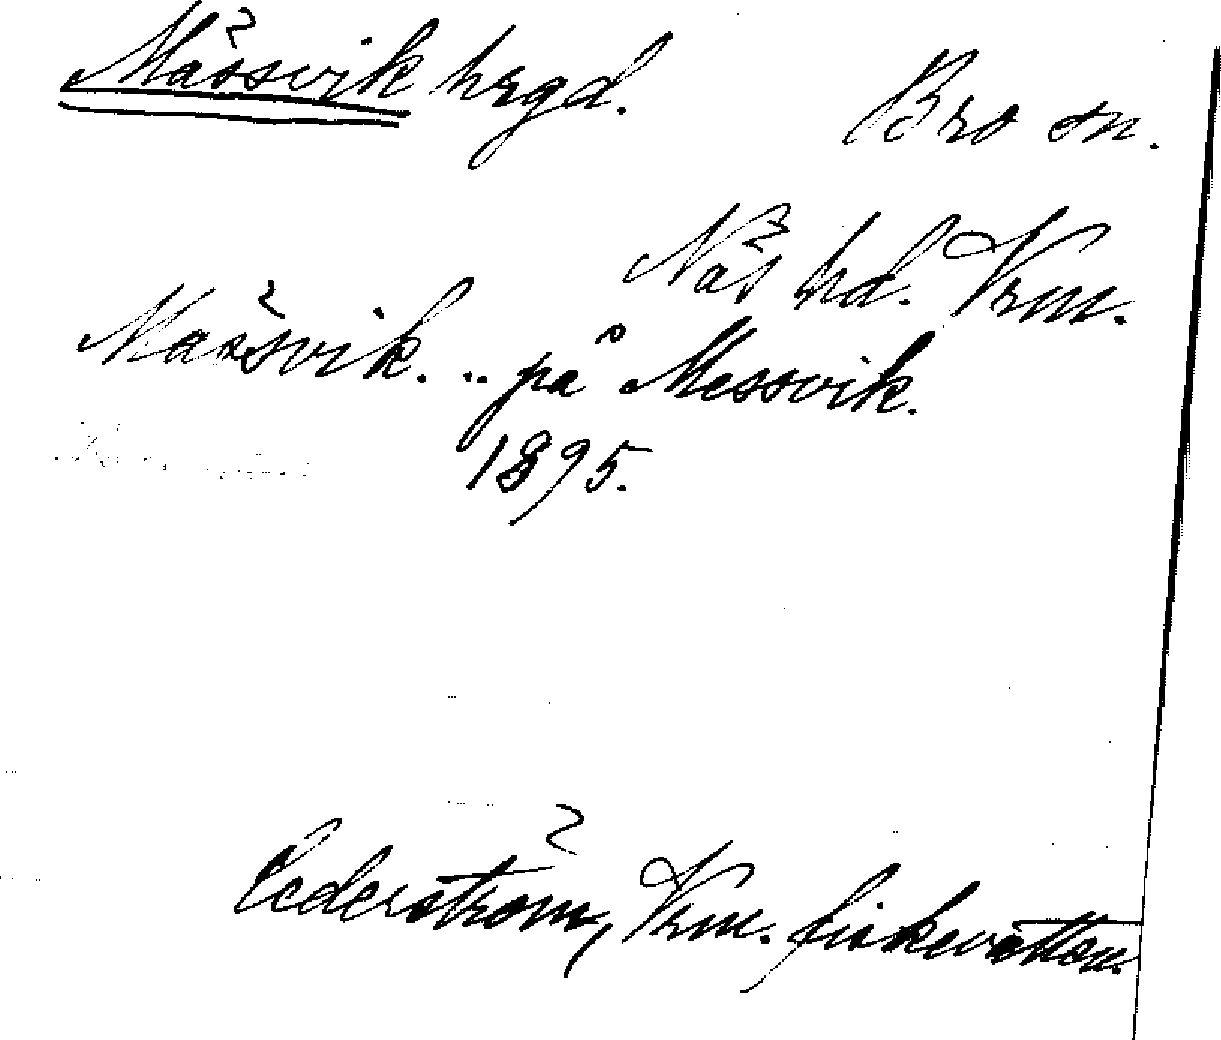 Mässvik hrgd.
Bro sn.
Näs hd. Vrm.
Mässvik. .. på Messvik.
1895.
Cederström, Vrm. fiskevatten.